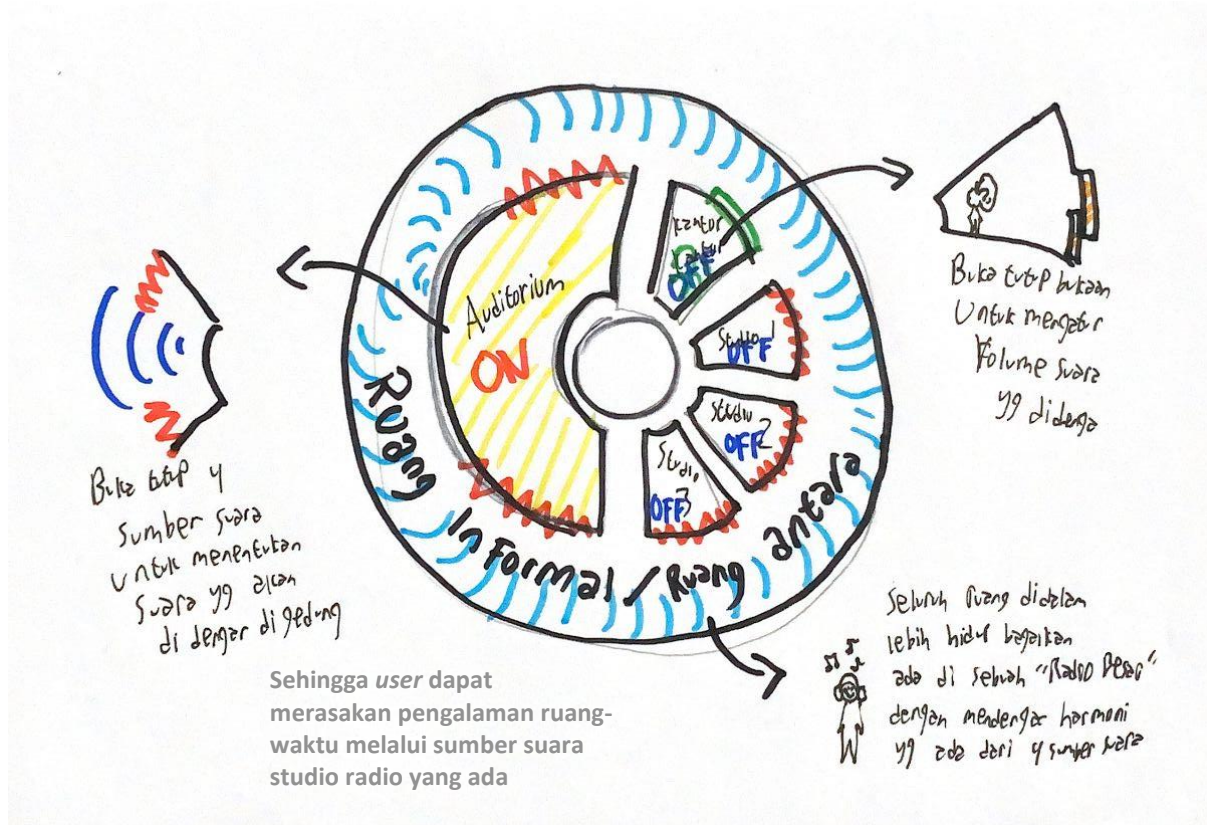 Auditorium
ON
Kantor
Kantor
OFF
Studio 1
OFF
Studio 2
OFF
Studio 3
OFF
Ruang Informal / Ruang antara
Buka tutup 4
Sumber suara
Untuk menentukan
Suara yg akan
di dengar di gedung
Buka tutup bukaan
Untuk mengatur
Volume suara
yg didenga
Seluruh ruang didalam
lebih hidup bagaikan
ada di sebuah "Radio Besar"
dengan mendengar harmoni
yg ada dari 4 sumber suara
Sehingga user dapat
merasakan pengalaman ruang-
waktu melalui sumber suara
studio radio yang ada